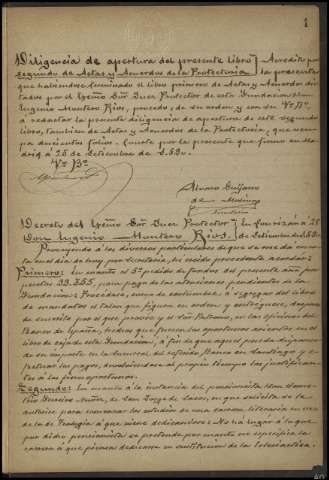 1
Diligencia de apertura del presente libro } Acredito por
segundo de Actas y Acuerdos de la Protectoría } la presente
que habiendose terminado el libro primero de Actas y Acuerdos dic-
tados por el Exmo Sor Juez Protector de esta Fundación Don
Eugenio Montero Rios, procedo, de su orden y con su Vº Bº,
á redactar la presente diligencia de apertura de este segundo
libro, tambien de Actas y Acuerdos de la Protectoría, que ocu-
pa doscientos folios. Consta por la presente que firmo en Ma-
drid á 25 de Setiembre de
Vº Bº
Alvaro Quijano
de
Decreto del Exmo Sor Juez Protector } En Lourizán á 25
Don Eugenio Montero Rios. } de Setiembre de
Proveyendo á los diversos particulares de que se me dá cuen-
ta en el dia de hoy por Secretaría, he tenido procedente acordar:
Primero: En cuanto al 5º pedido de fondos del presente año, por
pesetas 33.255, para pago de las atenciones pendientes de la
Fundacion: Procédase, nueva de contabilidad, á segregar del libro
de cuentas el talon que figura en orden y entréguese, despues
de suscrito por el que provee y el Sor Patrono, en las oficinas del
Banco de España, hechos que fueran los oportunos asientos en el
libro de caja de esta Fundacion, á fin de que aquel pueda disponer
de su importe en la Sucursal del referido Banco en Santiago y e-
fectuar los pagos, devolviendose al propio tiempo los justifican-
tes á los fines oportunos.
Segundo: En cuanto á la instancia del pensionista Don
Nuñez, de San Jorge de Sacos, en que solicita se le
autorice para comenzar los estudios de una carrera literaria en vez
de la de Teología á que viene dedicandose: No ha lugar á lo que
por dicho pensionista se pretende por cuanto no especifica la
carrera á que piensa dedicarse en sustitucion de la Eclesiastica.